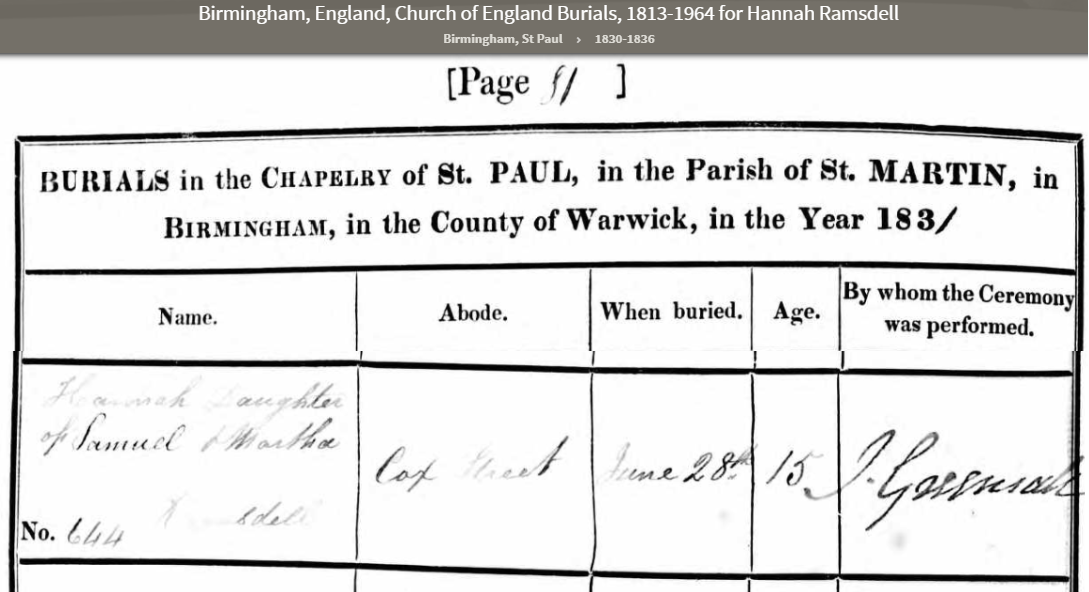 Birmingham, England, Church of England Burials, 1813-1964 for Hannah Ramsdell
Birmingham, St Paul › 1830-1836
[Page 81 ]
BURIALS in the CHAPELRY of St. PAUL, in the Parish of St. MARTIN, in
BIRMINGHAM, in the County of Warwick, in the Year 1831
Name.
Abode.
When buried.
Age.
By whom the Ceremony
was performed.
Hannah Daughter
of Samuel & Martha
Ramsdell
No. 644
Cox Street
June 28th
15
J.